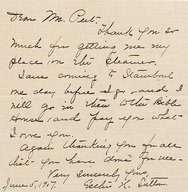 Dear Mr. Peet -
Thank you so
much for getting me my
place on the steamer.
I am coming to Stamboul
one day before I go - and I
will go in then to the Bible
House and pay you what
I owe you.
Again thanking you for all
that you have done for me -
Very sincerely yours,
H. Sutton
June 5, 1917.